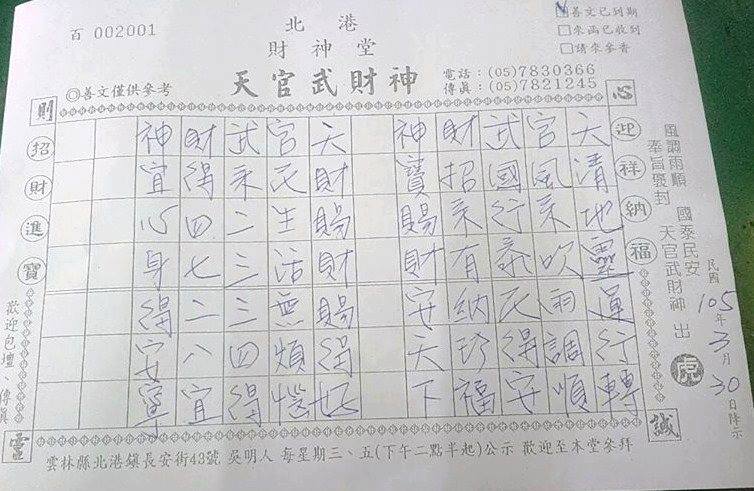 百 002001
北港
財神堂
天官武財神
◎善文僅供參考
電話：(05)7830366
傳真：(05)7821245
善文已到期
來函已收到
請來參香
心
則
誠
靈
迎祥納福
招財進寶
風調雨順 國泰民安
天官武財神 出
虎
民國105年3月30日降示
天清地靈運行轉
官風來吹雨調順
武國行泰民得安
財招來有納珍福
神寶賜財安天下
天財賜財賜得好
官民生活無煩惱
武來二三三四得
財得四七二八宜
神宜心身得安寧
歡迎包壇、傳真
雲林縣北港鎮長安街43號 吳明人 每星期三、五(下午二點半起)公示 歡迎至本堂參拜